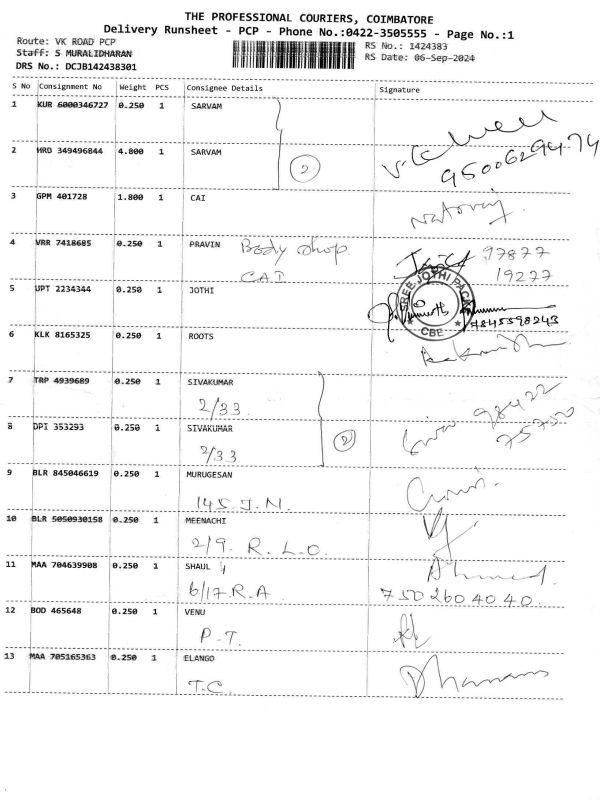 THE PROFESSIONAL COURIERS, COIMBATORE
Delivery Runsheet - PCP - Phone No.:0422-3505555 - Page No.:1
Route: VK ROAD PCP
Staff: S MURALIDHARAN
DRS No.: DCJB142438301
RS No.: 1424383
RS Date: 06-Sep-2024
S No Consignment No Weight PCS Consignee Details Signature
1 KUR 6000346727 0.250 1 SARVAM
2 HRD 349496844 4.800 1 SARVAM
2
9500629474
3 GPM 401728 1.800 1 CAI
Nataraj
4 VRR 7418685 0.250 1 PRAVIN Body shop
CAI
97877
19277
5 UPT 2234344 0.250 1 JOTHI
SREE JOTHI PACK
CBE
9845598243
6 KLK 8165325 0.250 1 ROOTS
7 TRP 4939689 0.250 1 SIVAKUMAR
2/33
8 DPI 353293 0.250 1 SIVAKUMAR
2/33
2
Siva 98422
75700
9 BLR 845046619 0.250 1 MURUGESAN
145. J. N.
10 BLR 5050930158 0.250 1 MEENACHI
2/9. R. L. O.
11 MAA 704639908 0.250 1 SHAUL
6/17. R. A
Ahmed.
7502604040.
12 BOD 465648 0.250 1 VENU
P. T.
13 MAA 705165363 0.250 1 ELANGO
T.C.